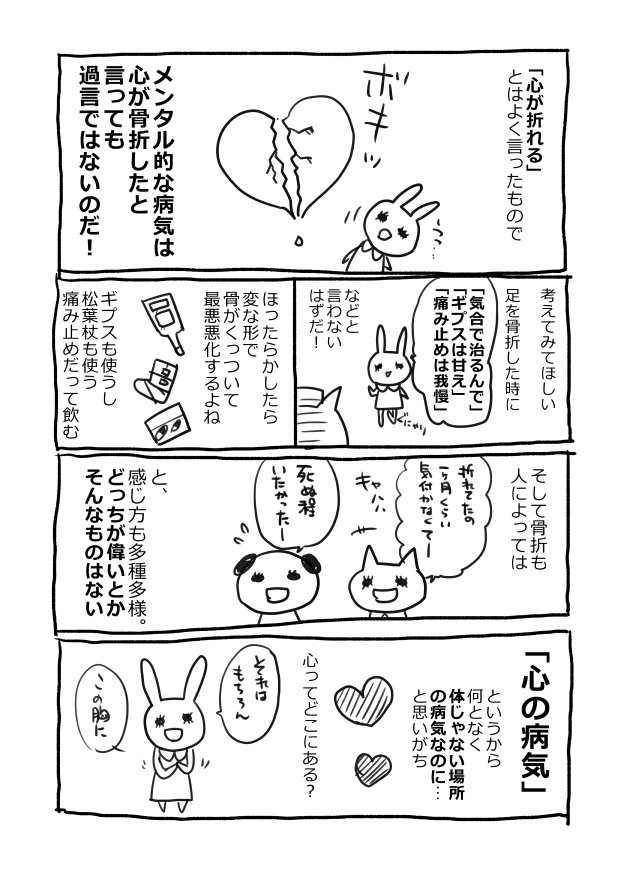 「心が折れる」
とはよく言ったもので
ボキッ
うっ…
メンタル的な病気は
心が骨折したと
言っても
過言ではないのだ！
考えてみてほしい
足を骨折した時に
「気合で治るんで」
「ギプスは甘え」
「痛み止めは我慢」
ぐにゃり
などと
言わない
はずだ！
ほったらかしたら
変な形で
骨がくっついて
最悪悪化するよね
ギプスも使うし
松葉杖も使う
痛み止めだって飲む
そして骨折も
人によっては
折れてたの
一ヶ月くらい
気付かなくてー
キャハハ
死ぬ程
いたかったー
と、
感じ方も多種多様。
どっちが偉いとか
そんなものはない
「心の病気」
というから
何となく
体じゃない場所
の病気なのに…
と思いがち
心ってどこにある？
それは
もちろん
この胸に